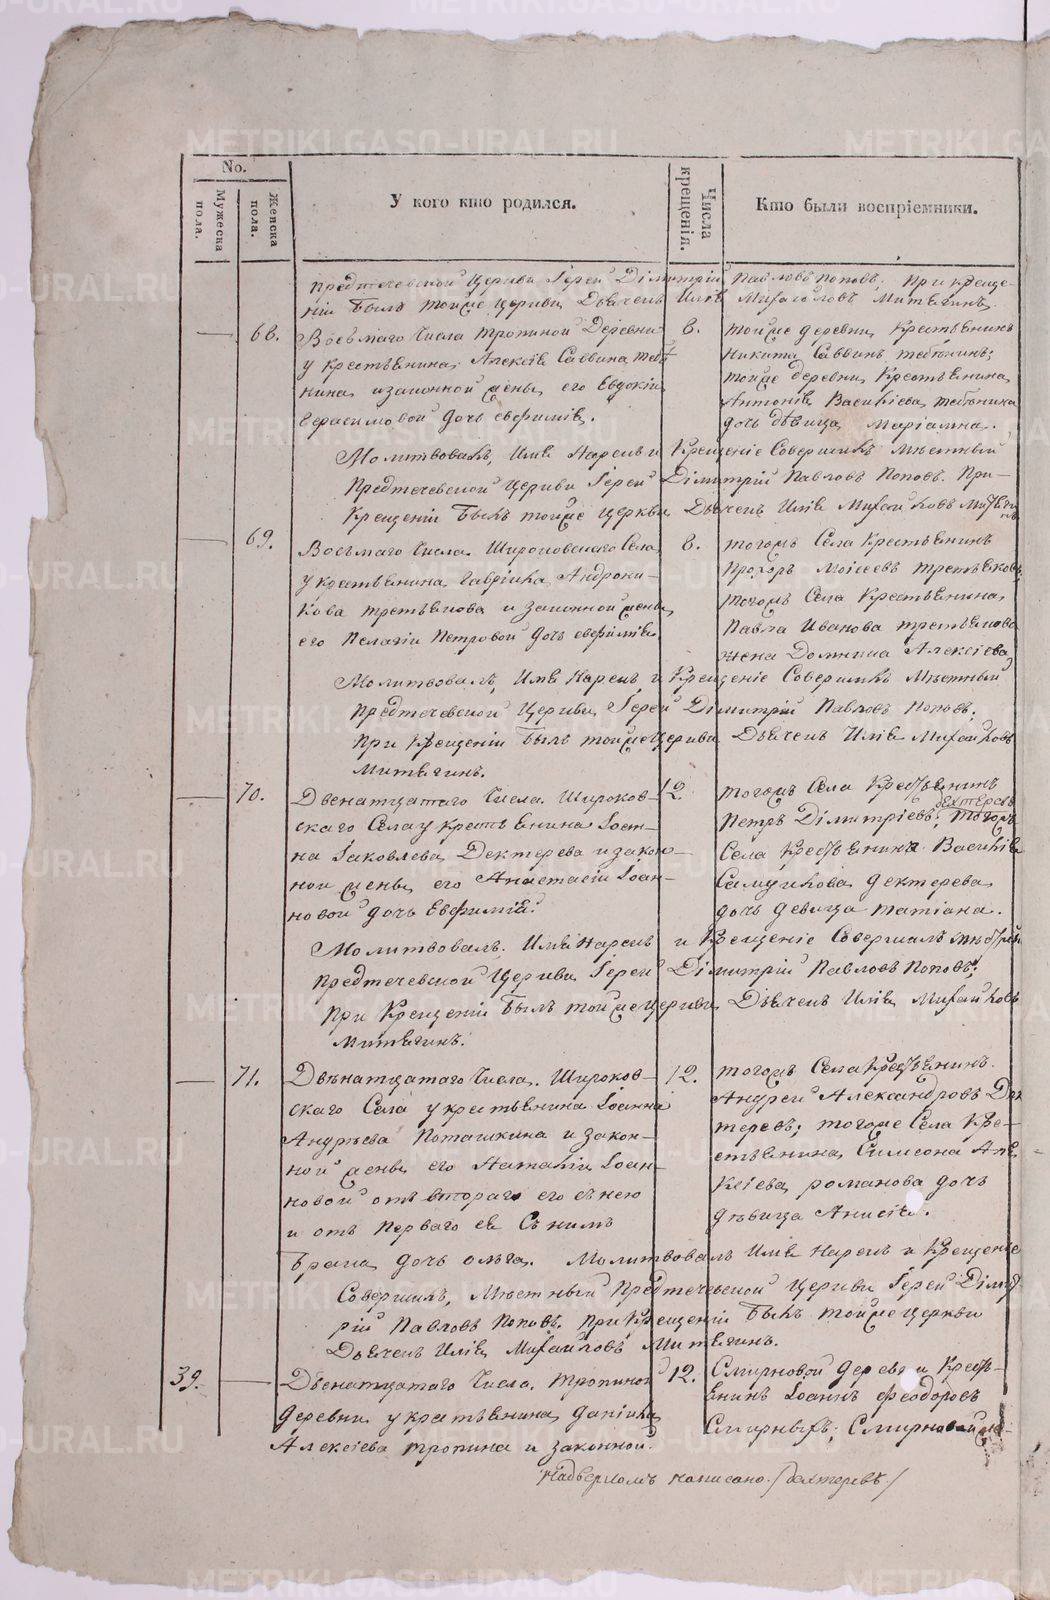 No.
Мужеска пола.
Женска пола.
У кого кто родился.
Числа крещенія.
Кто были воспріемники.
предтечевской Церкви Іерей Дімитрій Павловъ Поповъ. При креще-
ніи былъ тойже церкви Дьячекъ Илія Михайловъ Митягинъ.
68. Восьмаго Числа Тропиной Деревни
у крестьянина Алексія Саввина
и законной жены его Евдокіи
Герасимовой дочь евфимія.
8. тойже деревни Крестьянинъ
Никита Саввинъ
тойже деревни Крестьянина
Антонія Васильева
дочь дѣвица Маріамна.
Молитвовалъ, Имя Нарекъ и Крещеніе Совершилъ Мѣстный
Предтечевской Церкви Іерей Дімитрій Павловъ Поповъ. При-
Крещеніи былъ тойже церкви Дьячекъ Илія Михайловъ Митягинъ
69. Восьмаго Числа. Широковскаго Села
у крестьянина Гавріила Андрони-
кова третьякова и законной жены
его Пелагіи Петровой дочь евфимія.
8. тогожъ Села Крестьянинъ
Прохоръ Моісеевъ третьяковъ
тогожъ Села Крестьянина
Павла Иванова третьякова
жена Домника Алексіева
Молитвовалъ, Имя Нарекъ и Крещеніе Совершилъ Мѣстный
Предтечевской Церкви Іерей Дімитрій Павловъ Поповъ;
при Крещеніи былъ тойже Церкви Дьячекъ Илія Михайловъ
Митягинъ.
70. Двенатцатаго Числа. Широков-
скаго Села у крестьянина Іоан-
на Іаковлева Дектерева и закон-
ной жены его Анастасіи Іоан-
новой дочь Евфимія.
12. тогожъ Села Крестьянинъ
дехтеревъ
Петръ Дімитріевъ; тогожъ
Села Крестьянина Василія
Самуилова дектерева
дочь девица татіана.
Молитвовалъ. Имя Нарекъ и Крещеніе Совершалъ мѣстный
предтечевской Церкви Іерей Дімитрій Павловъ Поповъ;
При Крещеніи былъ тойже Церкви Дьячекъ Илія Михайловъ
Митягинъ.
71. Двѣнатцатаго Числа. Широков-
скаго Села у крестьянина Іоанна
Андрѣева Поташкина и закон-
ной жены его Наталіи Іоан-
новой отъ втораго его с нею
и отъ перваго ея Съ нимъ
12. тогожъ Села Крестьянинъ.
Андрей Александровъ Дек
теревъ; тогоже Села Кре-
стьянина Симеона Але
ксіева романова дочь
дѣвица Анисія.
брака дочь олга. Молитвовалъ Имя Нарекъ и Крещеніе
Совершилъ, Мѣстный Предтечевской Церкви Іерей Дімит
рій Павловъ Поповъ. при Крещеніи былъ тойже церкви
Дьячекъ Илія Михайловъ Митягинъ.
39. Двенатцатаго Числа. Тропиной
деревни у крестьянина даніила
Алексіева тропина и законной
12. Смирновой деревни Крест-
янинъ Іоаннъ феодоровъ
Смирныхъ; Смирновой же-
надверхомъ написано /дехтеревъ./